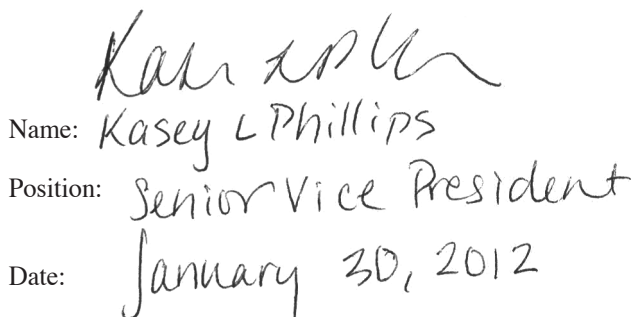 Name: Kasey L Phillips
Position: Senior Vice President
Date: January 30, 2012